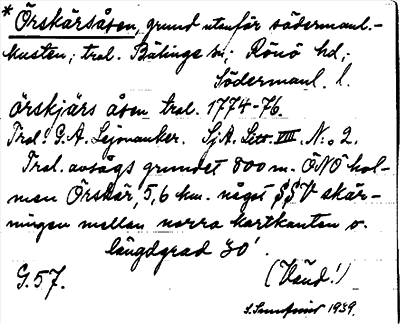 * Örskärsåsen, grund utanför södermanl.-
kusten; trol. Bälinge sn; Rönö hd;
Södermanl. l.
örskjärs åsen trol. 1774-76
Trol. G.A. Lejonanker. SjA. Litt. VIII. N:o 2.
Trol. avsågs grundet 800 m. ÖNÖ hol-
men Örskär, 5,6 km. något SSV skär-
ningen mellan norra kartkanten o.
längdgrad 30'.
G. 57. (Vänd!)
1939.